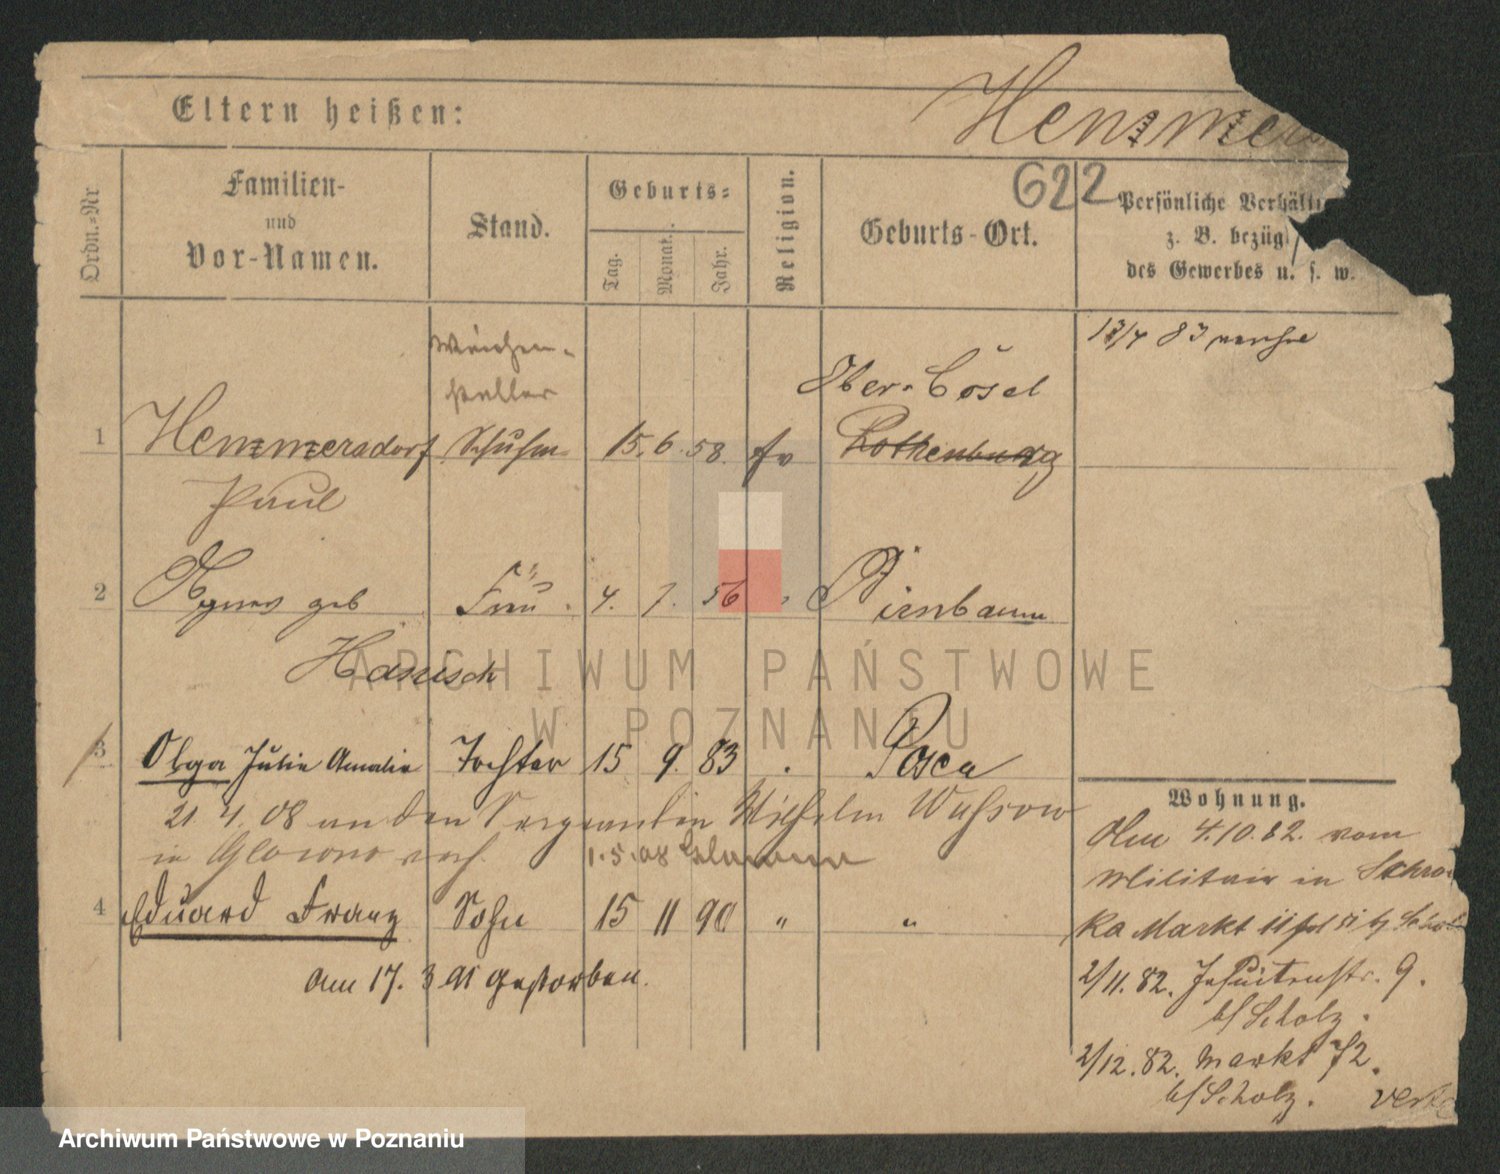 Eltern heißen:
622
Ordn.-Nr
Familien-
und
Vor-Namen.
Stand.
Geburts-
Tag.
Monat.
Jahr.
Religion.
Geburts-Ort.
Persönliche
z. B.
des Gewerbes u. s. w.
13/4 83
Weichen-
steller
Ober-Cosel
1 Hemmersdorf Schuhm. 15. 6. 58. ev Rothenburg
Paul
2 Agnes geb Frau. 4. 7. 56 Birnbaum
Hanisch
3 Olga Julie Amalie Tochter 15 9. 83 Posen
21. 4. 08 an den Sergeanten Wilhelm Wussow
in Glowno 1.5.08
4 Eduard Franz Sohn 15 11 90 " "
am 17. 3 91 gestorben.
Wohnung.
4.10.82. vom
Militair in
Markt
2/11. 82. Jesuitenstr. 9.
b/ Scholz.
2/12. 82. Markt 72.
b/ Scholz.
ARCHIWUM PAŃSTWOWE
W POZNANIU
Archiwum Państwowe w Poznaniu